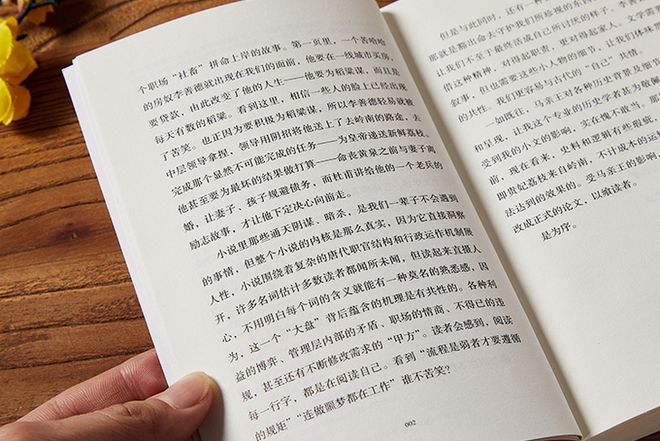 个职场“社畜”拼命上岸的故事。第一页里，一个苦哈哈
的房奴李善德就出现在我们的面前，他要在一线城市买房，
要贷款，由此改变了他的人生——他要为稻粱谋，而且是
每天有数的稻粱。看到这里，相信一些人的脸上已经出现
了苦笑。也正因为要积极为稻粱谋，所以李善德轻易就被
中层领导拿捏，领导用阴招将他送上了去岭南的路途，去
完成那个显然不可能完成的任务——为皇帝递送新鲜荔枝。
他甚至要为最坏的结果做打算——命丧黄泉之前与妻子离
婚，让妻子、孩子规避债务，而杜甫讲给他的一个老兵的
励志故事，才让他下定决心向前走。
小说里那些通天阴谋、暗杀，是我们一辈子不会遇到
的事情，但整个小说的内核是那么真实，因为它直接洞察
人性，小说围绕着复杂的唐代职官结构和行政运作机制展
开，许多名词估计多数读者都闻所未闻，但读起来直摄人
心，不用明白每个词的含义就能有一种莫名的熟悉感，因
为，这一个“大盘”背后蕴含的机理是有共性的。各种利
益的博弈、管理层内部的矛盾、职场的情商、不得已的违
规，甚至还有不断修改需求的“甲方”。读者会感到，阅读
每一行字，都是在阅读自己。看到“流程是弱者才要遵循
的规矩”“连做噩梦都在工作”谁不苦笑？
002
但是与此同时，还有一种
那就是豁出命去守护我们所珍视的
让我们不至于最终活成自己所讨厌的样子。李善
借这种精神，对得起职责，更对得起家人。文学需要
叙事，但也需要这些小人物的细节，让我们体味
的共性。我们更容易与古代的“自己”共情。
一如既往，马亲王对各种历史背景及细节
和呈现，让我这个专业的历史学者甚为敬佩
受到我的小文的影响，实在愧不敢当。那
前，现在看来，史料和逻辑有些瑕疵，
即贵妃荔枝来自岭南，不计成本的运
法达到的效果的。受马亲王的影响，
改成正式的论文，以飨读者。
是为序。